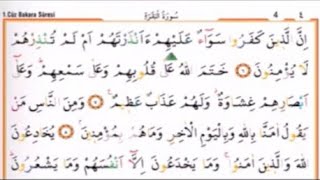 1.Cüz Bakara Sûresi سُورَةُ الْبَقَرَةِ 4 ٤
اِنَّ الَّذٖينَ كَفَرُوا سَوَٓاءٌ عَلَيْهِمْ ءَاَنْذَرْتَهُمْ اَمْ لَمْ تُنْذِرْهُمْ
لَا يُؤْمِنُونَ ٦ خَتَمَ اللّٰهُ عَلٰى قُلُوبِهِمْ وَعَلٰى سَمْعِهِمْ وَعَلٰٓى
اَبْصَارِهِمْ غِشَاوَةٌ وَلَهُمْ عَذَابٌ عَظٖيمٌ ٧ وَمِنَ النَّاسِ مَنْ
يَقُولُ اٰمَنَّا بِاللّٰهِ وَبِالْيَوْمِ الْاٰخِرِ وَمَا هُمْ بِمُؤْمِنٖينَ ٨ يُخَادِعُونَ
اللّٰهَ وَالَّذٖينَ اٰمَنُوا وَمَا يَخْدَعُونَ اِلَّٓا اَنْفُسَهُمْ وَمَا يَشْعُرُونَ ٩